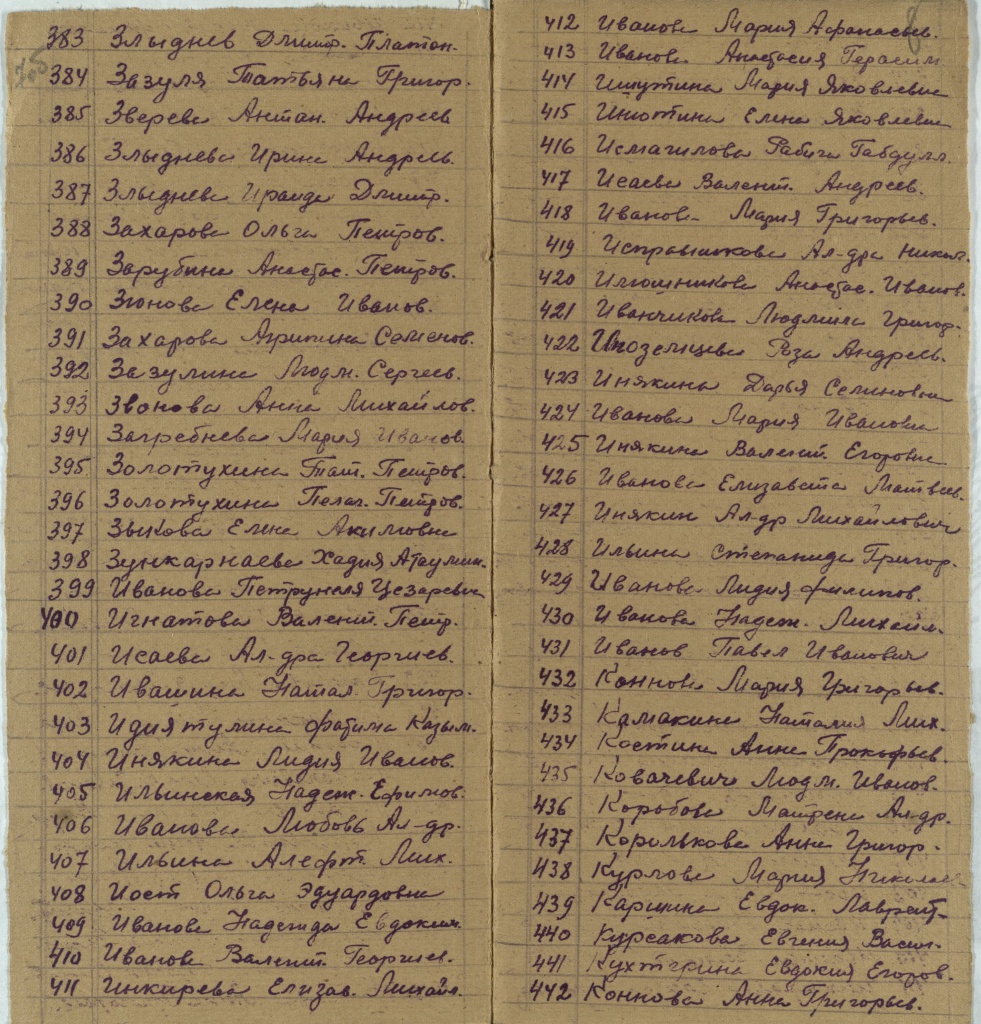 383 Злыднев Дмитр. Платон.
384 Зазуля Татьяна Григор.
385 Зверева Антан. Андреев
386 Злыднева Ирина Андреев.
387 Злыднева Ираида Дмитр.
388 Захарова Ольга Петров.
389 Зарубина Анастас. Петров.
390 Зионова Елена Иванов.
391 Захарова Агрипина Семенов.
392 Зазулина Людм. Сергеев.
393 Звонова Анна Михайлов.
394 Загребнева Мария Иванов.
395 Золотухина Тат. Петров.
396 Золотухина Пелаг. Петров.
397 Зыкова Елена Акимовна
398 Зункарнаева Хадия
399 Иванова Петрунеля Цезаревна
400 Игнатова Валент. Петр.
401 Исаева Ал-дра Георгиев.
402 Ивашина Натал Григор.
403 Идиятулина Фатима Казым.
404 Инякина Лидия Иванов.
405 Ильинская Надеж. Ефимов.
406 Иванова Любовь Ал-др.
407 Ильина Алефт. Мих.
408 Иост Ольга Эдуардовна
409 Иванова Надежда Евдоким.
410 Иванова Валент. Георгиев.
411 Инкирева Елизав. Михайл.
8
412 Иванова Мария Афанасьев.
413 Иванова Анастасия Герасим.
414 Ишутина Мария Яковлевна
415 Инютина Елена Яковлевна
416 Исмагилова Рабига Габдулл.
417 Исаева Валент. Андреев.
418 Иванова Мария Григорьев.
419 Исправникова Ал-дра Никол.
420 Анастас. Иванов.
421 Иванчикова Людмила Григор.
422 Иноземцева Роза Андреев.
423 Инякина Дарья Семеновна
424 Иванова Мария Ивановна
425 Инякина Валент. Егоровна
426 Иванова Елизавета Матвеев.
427 Инякин Ал-др Михайлович
428 Ильина Степанида Григор.
429 Иванова Лидия Филипов.
430 Иванова Надеж. Михайл.
431 Иванов Павел Иванович
432 Коннова Мария Григорьев.
433 Камакина Наталия Мих.
434 Костина Анна Прокофьев.
435 Ковачевич Людм. Иванов.
436 Коробова Матрена Ал-др.
437 Королькова Анна Григор.
438 Курлова Мария Николаев
439 Каршина Евдок. Лаврент.
440 Курсакова Евгения Васил.
441 Кухтерина Евдокия Егоров.
442 Коннова Анна Григорьев.